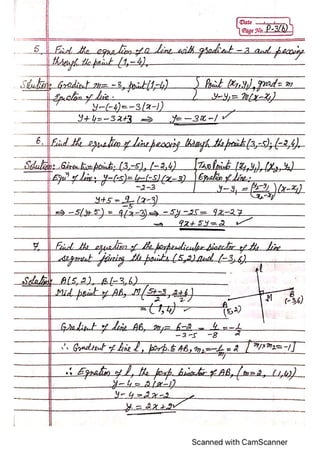 Date
Page No. P-3(b)
5. Find the equation of a line with gradient -3 and passing
through the point (1,-4).
Solution: Gradient m = -3, point (1,-4) } Point (x₁,y₁), grad = m
Equation of line: y-y₁ = m(x-x₁)
y-(-4) = -3(x-1)
y+4 = -3x+3 ⇒ y = -3x-1 ✓
6. Find the equation of line passing through the points (3,-5), (-2,4).
Solution: Given two points: (3,-5), (-2,4) Two Points (x₁,y₁), (x₂,y₂)
Eqnⁿ of line: y-(-5) = 4-(-5)/-2-3 (x-3) Equation of line:
y-y₁ = (y₂-y₁/x₂-x₁)(x-x₁)
y+5 = 9/-5 (x-3)
⇒ -5(y+5) = 9(x-3) ⇒ -5y-25 = 9x-27
⇒ 9x+5y = 2 ✓
7. Find the equation of the perpendicular bisector of the line
segment joining the points (5,2) and (-3,6).
Solution: A(5,2), B(-3,6)
Mid point of AB, M(5+-3/2, 2+6/2)
= (1,4) ✓
l
M
A
(5,2)
B
(-3,6)
Gradient of line AB, m₁ = 6-2/-3-5 = 4/-8 = -1/2
∴ Gradient of line l, perp. to AB, m₂ = -1/m₁ = 2 [m₁×m₂ = -1]
∴ Equation of l, the perp. bisector of AB, (m=2, (1,4))
y-4 = 2(x-1)
y-4 = 2x-2
y = 2x+2 ✓
Scanned with CamScanner